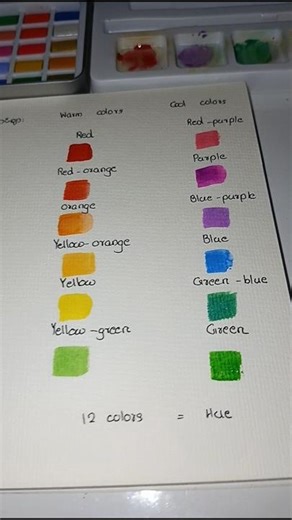 Warm colors
Cool colors
Red
Red-orange
Orange
Yellow-orange
Yellow
Yellow-green
Red-purple
Purple
Blue-purple
Blue
Green-blue
Green
12 colors = Hue